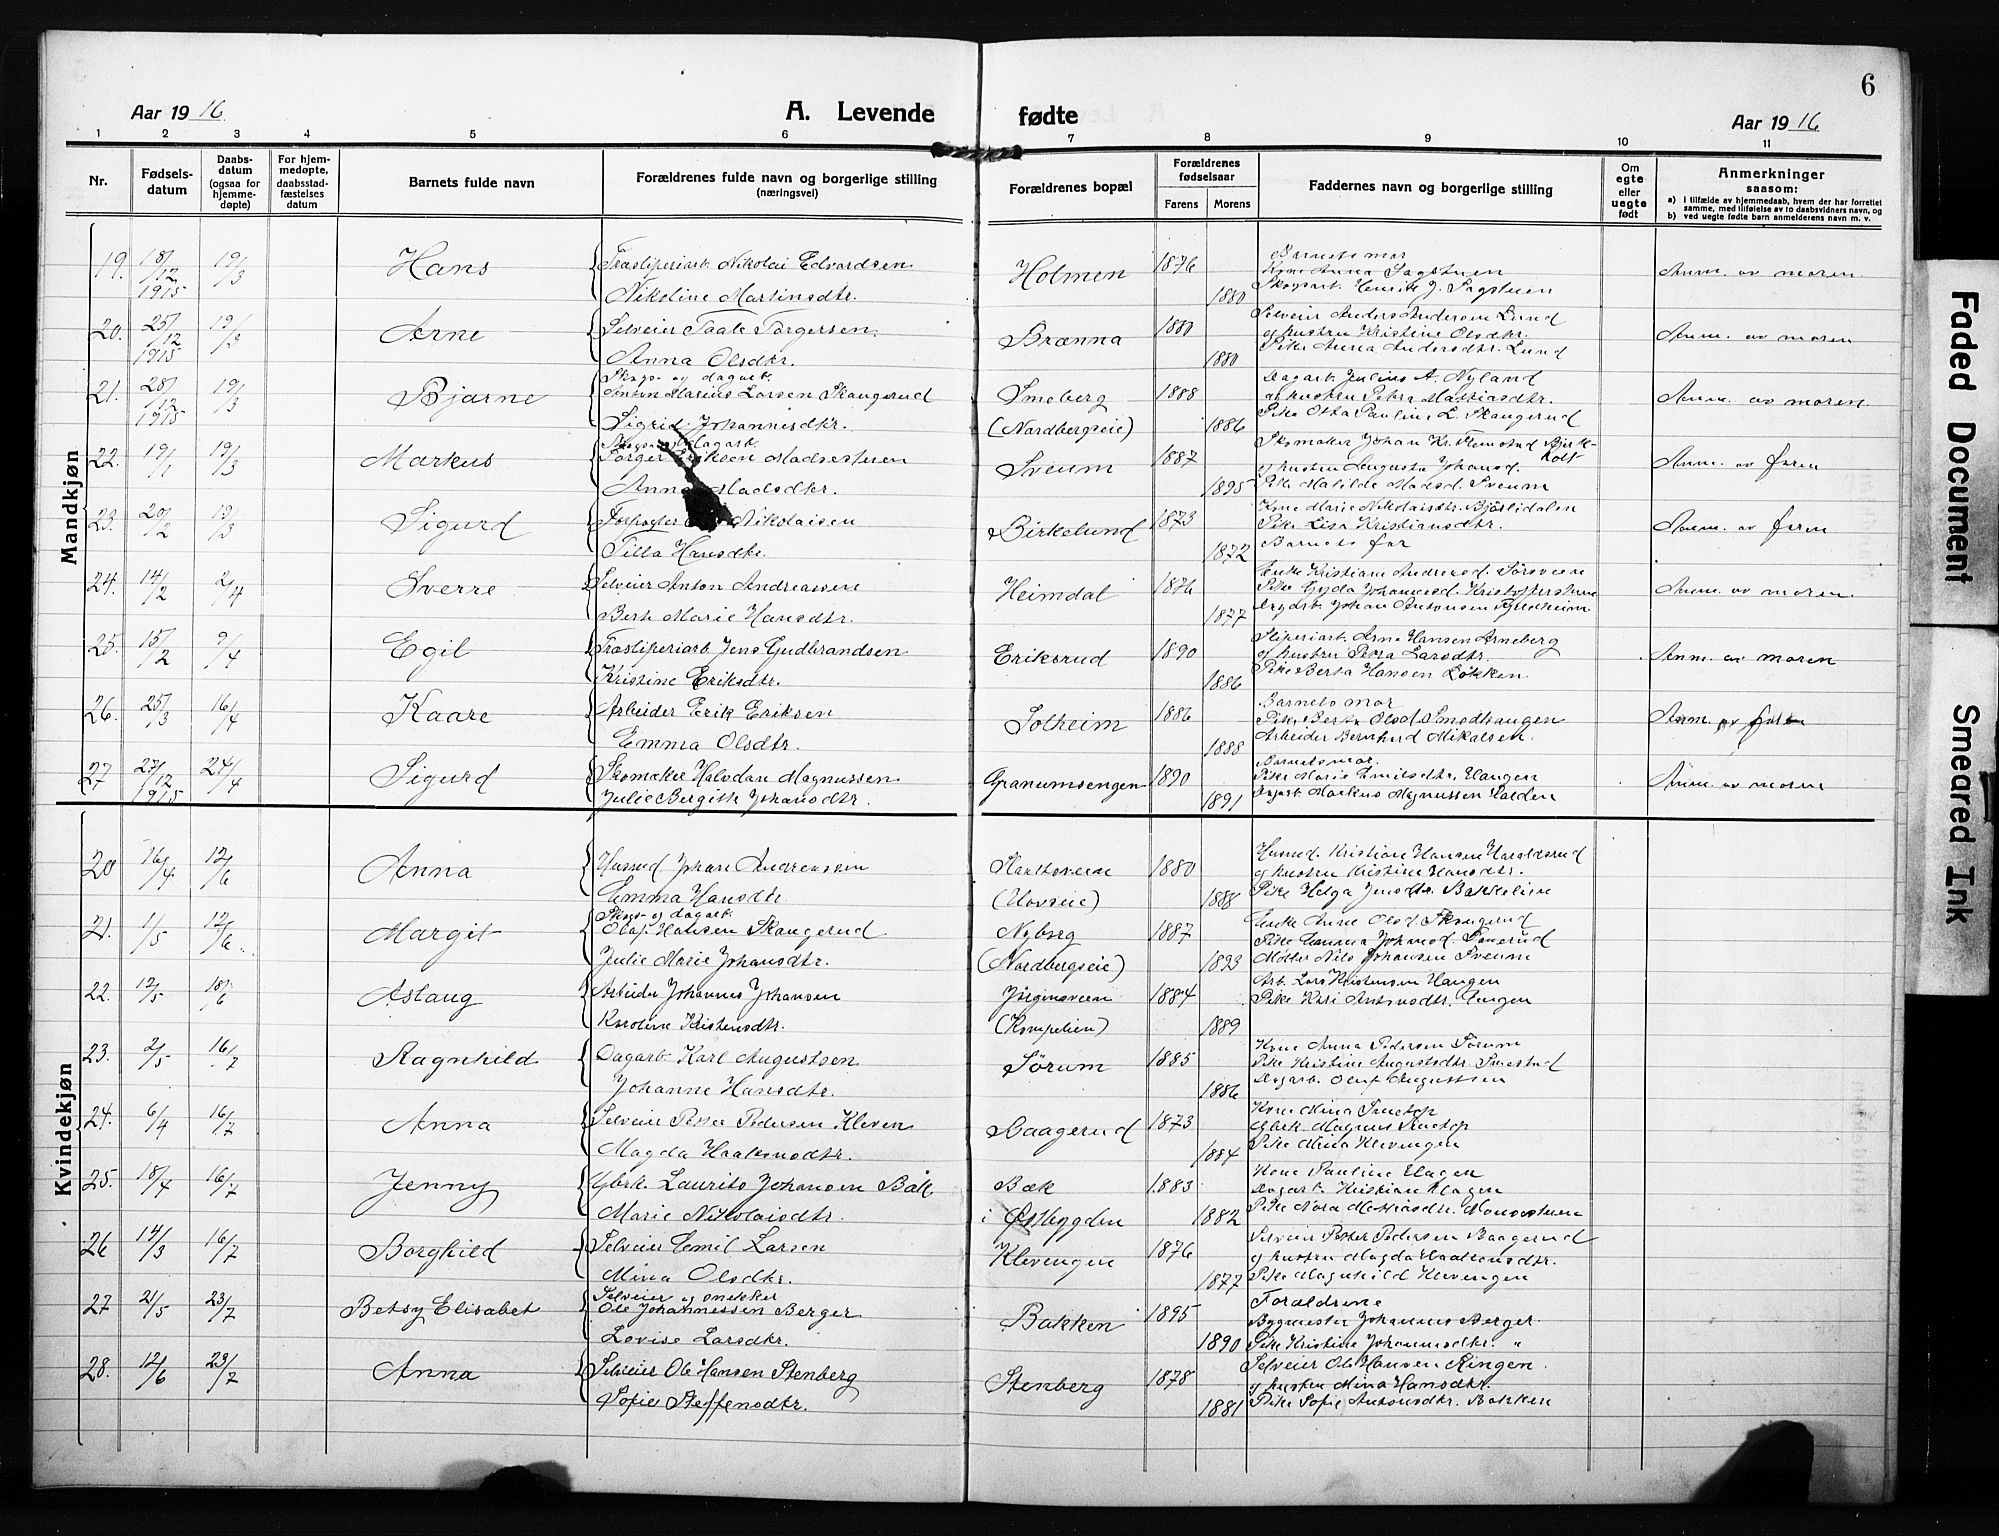 6
Aar 1916
A. Levende fødte
Aar 1916
1 2 3 4 5 6 7 8 9 10 11
Nr.
Fødsels-datum
Daabs-datum (ogsaa for hjemme-døpte)
For hjem-medøpte, daabsstad-fæstelses datum
Barnets fulde navn
Forældrenes fulde navn og borgerlige stilling (næringsvei)
Forældrenes bopæl
Forældrenes fødselsaar
Farens Morens
Faddernes navn og borgerlige stilling
Om egte eller uegte født
Anmerkninger saasom:
a) i tilfælde av hjemmedaab, hvem der har forrettet samme, med tilføielse av to daabsvidners navn, og
b) ved uegte fødte barn anmelderens navn m. v.
Mandkjøn
19. 18/12 1915 19/3 Hans Træsliperiarb. Nikolai Edvardsen Holmen 1876 Barnets mor Anm. av moren
Kone Anna Sagstuen
Nikoline Martinsdtr. 1880 Skogsarb. Henrik J. Sagstuen
20. 25/12 1915 19/3 Arne Selveier Taale Torgersen Brænna 1880 Selveier Anders Andersen Lund Anm. av moren
og hustru Kristine Olsdtr.
Anna Olsdtr. 1880 Pike Anna Andersdtr. Lund
21. 28/12 1915 19/3 Bjarne Skogs- og dagarb. Anton Marius Larsen Skaugerud Smeberg 1888 Dagarb. Julius A. Nyland Anm. av moren
og hustru Petra Mattiasdtr.
Sigrid Johannesdtr. (Nordbergseie) 1886 Pike Otta Pauline L. Skaugerud
22. 19/1 19/3 Markus Torger Eriksen Madsestuen Sveum 1887 Skomaker Johan Kr. Flemstad Bjerk-holt Anm. av faren
og hustru Augusta Johansd.
Anna Madsdtr. 1895 Pike Matilde Madsd. Sveum
23. 20/2 19/3 Sigurd Nikolaisen Birkelund 1873 Kone Marie Nikolaisdtr. Bjöslidalen Anm. av faren
Pike Lisa Kristiansdtr.
Tilla Hansdtr. 1872 Barnets far
24. 14/2 2/4 Sverre Selveier Anton Andreassen Heimdal 1876 Enke Kristiane Andersd. Sörsveen Anm. av moren
Pike Gyda Johannesd. Kristofferstuen
Bert. Marie Hansdtr. 1877 Dagarb. Johan Antonsen
25. 15/2 9/4 Egil Træsliperiarb. Jens Gudbrandsen Eriksrud 1890 Sliperiarb. Arne Hansen Arneberg Anm. av moren
og hustru Petra Larsdtr.
Kristine Eriksdtr. 1886 Pike Berta Hansen Løkken
26. 25/3 16/4 Kaare Arbeider Erik Eriksen Solheim 1886 Barnets mor Anm. av faren
Pike Berta Olsd. Smedhaugen
Emma Olsdtr. 1888 Arbeider Bernhard Mikalsen.
27 27/12 1915 24/4 Sigurd Skomaker Halvdan Magnussen Granumsengen 1890 Barnets mor. Anm. av moren
Pike Marie Emilsdtr. Haugen
Julie Bergitte Johansdtr. 1891 Dagarb. Markus Magnussen Halden
Kvindekjøn
20 16/4 12/6 Anna Husmd. Johan Andreassen 1880 Husmd. Kristian Hansen Haraldsrud
og hustru Kristine Hansdtr.
Emma Hansdtr. (Hovseie) 1888 Pike Helga Jensdtr. Bakkelien
21. 1/5 12/6 Margit Skogs- og dagarb. Olaf Hansen Skaugerud Nyberg 1887 Enke Anne Olsd. Skaugerud
Pike Emma Johansd. Sønerud
Julie Marie Johansdtr. (Nordbergseie) 1893 Møller Nils Johansen Sveum
22. 12/5 18/6 Aslaug Arbeider Johannes Johansen Jörginsveen 1884 Arb. Lars Kristensen Haugen
Pike Kari Antonsdtr. Engen
Karoline Kristensdtr. (Kompelien) 1889
23. 2/5 16/7 Ragnhild Dagarb. Karl Augustsen Sörum 1885 Kone Anna Pedersen Sörum
Pike Kristine Augustsdtr.
Johanne Hansdtr. 1886 Dagarb. Oluf Augustsen
24. 6/4 16/7 Anna Selveier Petter Pedersen Kleven Baagerud 1873 Kone Mina Snetop
Gbrk. Magnus Snetop
Magda Haakensdtr. 1884 Pike Mina Klevengen
25. 18/4 16/7 Jenny Gbrk. Laurits Johansen Bæk Bæk 1883 Kone Pauline Hagen
Dagarb. Kristian Hagen
Marie Nikolaisdtr. i Østbygden 1882 Pike Nora Mattiasdtr. Monsestuen
26 14/3 16/7 Borghild Selveier Emil Larsen Klevengen 1876 Selveier Petter Pedersen Baagerud
og hustru Magda Haakensdtr.
Mina Olsdtr. 1877 Pike Magnhild Klevengen
27 21/5 23/7 Betsy Elisabet Selveier og snekker Ole Johannessen Berger Bakken 1895 Forældrene
Bygmester Johannes Berger
Lovise Larsdtr. 1890 Pike Kristine Johannesdtr. "
28. 12/6 23/7 Anna Selveier Ole Hansen Stenberg Stenberg 1878 Selveier Ole Hansen Ringen.
og hustru Mina Hansdtr.
Sofie Steffensdtr. 1881 Pike Sofie Antonsdtr. Bakken
Faded Document
Smeared Ink